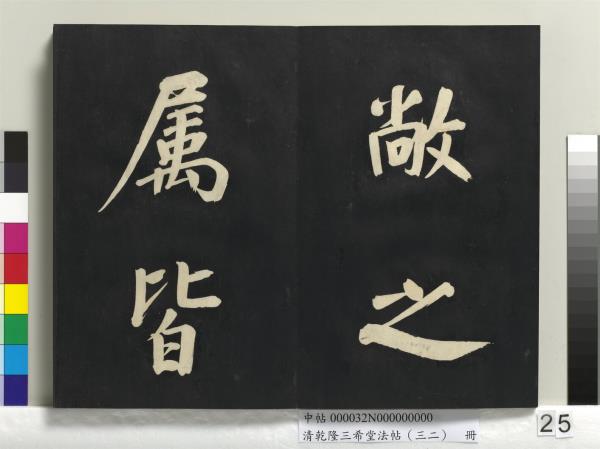 敞之
属皆
中帖 000032N000000000
清乾隆三希堂法帖（三二） 冊
25